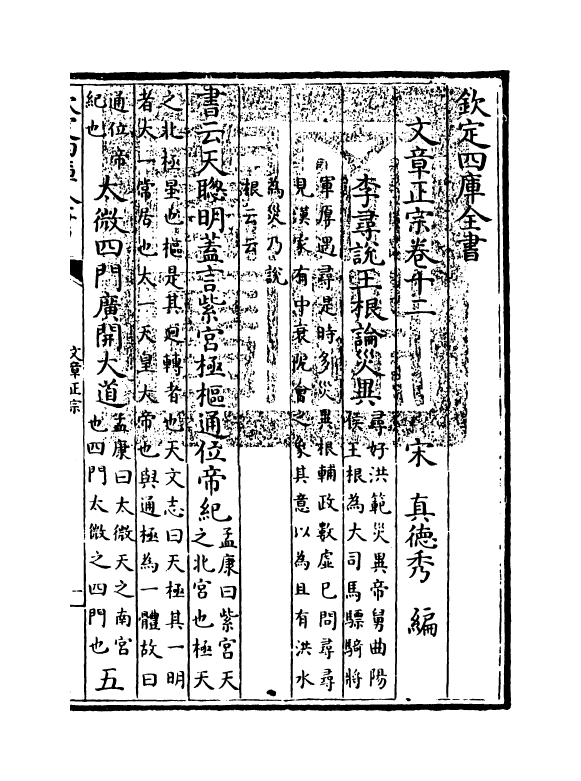 欽定四庫全書
文章正宗卷十二　宋　真德秀　編
李尋說王根論災異
尋好洪範災異帝舅曲陽
侯王根為大司馬驃騎將
軍厚遇尋是時多災異根輔政數虛已問尋尋
見漢家有中衰阨會之象其意以為且有洪水
為災乃說
根云云
書云天聰明蓋言紫宮極樞通位帝紀
孟康曰紫宮天
之北宮也極天
之北極星也樞是其迴轉者也天文志曰天極其一明
者大一常居也大一天皇大帝也與通極為一體故曰
通位帝
紀也
太微四門廣開大道
孟康曰太微天之南宮
也四門太微之四門也
五
文章正宗
一